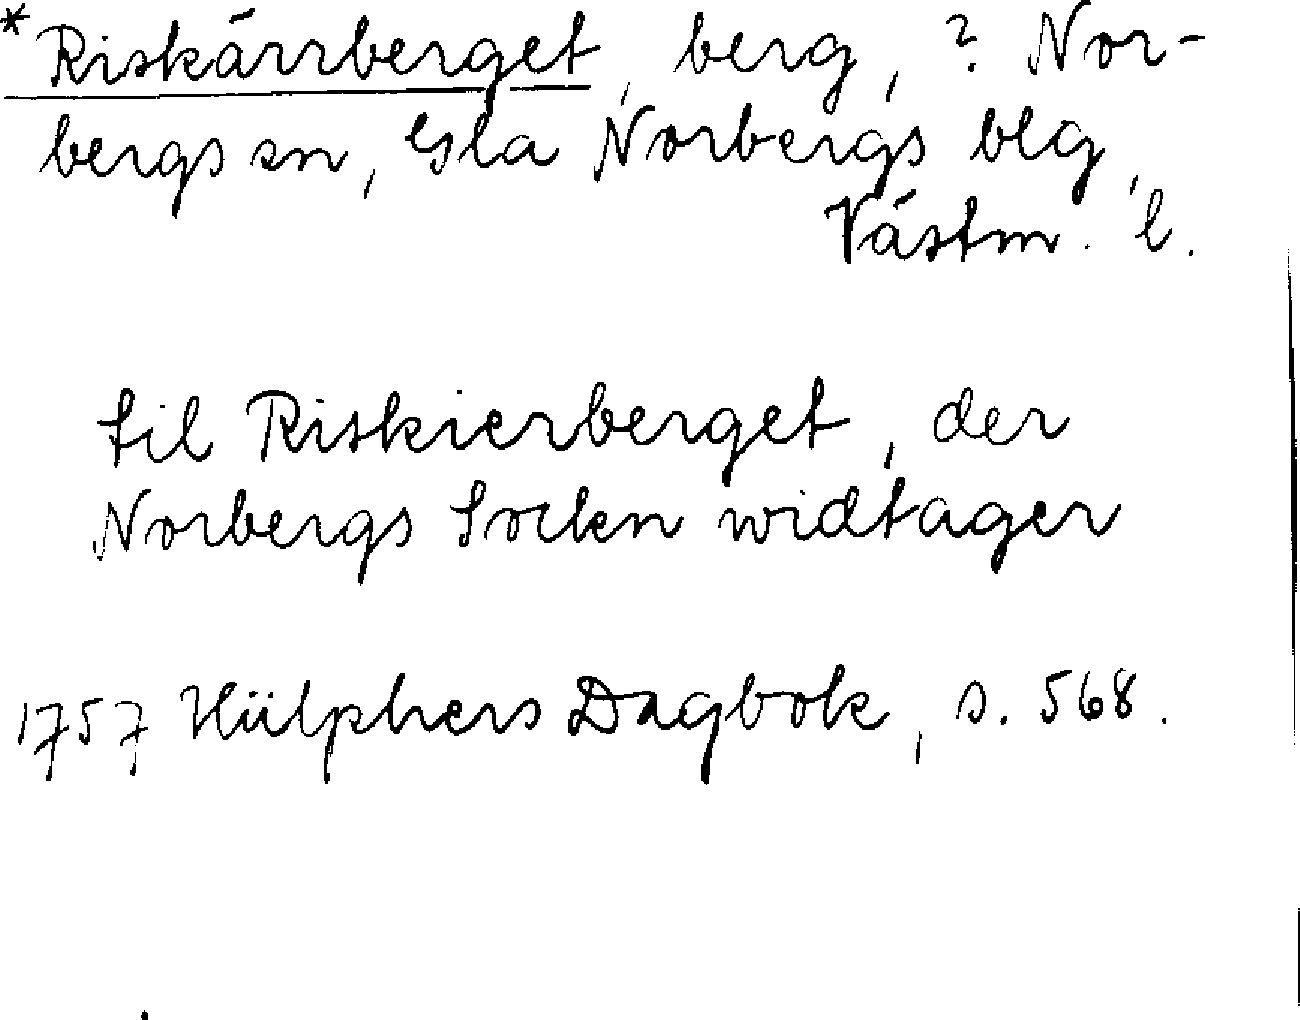 *Riskärrberget, berg, ? Nor-
bergs sn, Gla Norbergs blg,
Västm. l.
til Riskierberget, der
Norbergs Socken widtager
1757 Hülphers Dagbok, s. 568.